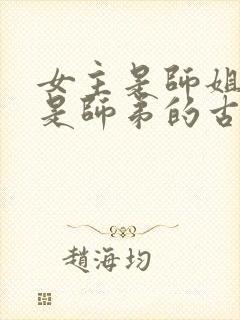 女主是師姐
是師弟的古
趙海均